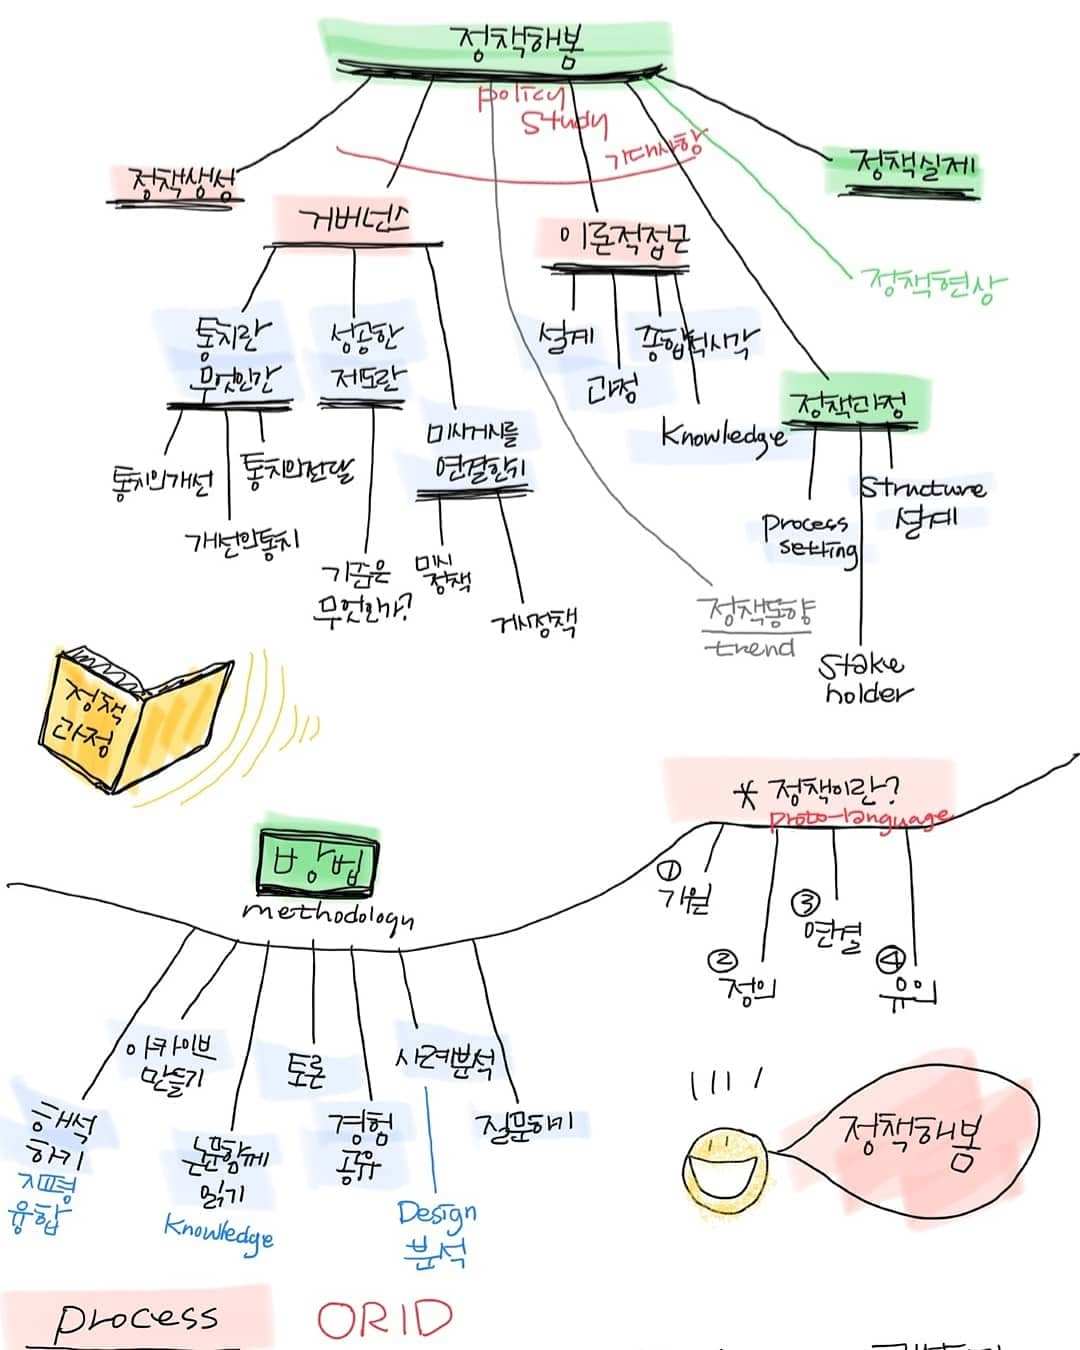 정책해봄
policy
study
기대사항
정책생성
정책실제
거버넌스
이론적접근
정책현상
통치란
무엇인간
성공한
제도란
설계
종합적시각
과정
정책과정
미시거시를
연결한위
Knowledge
통치의개선
통치의전달
개선의통치
Structure
설계
process
setting
기준은
무엇인가?
미시
정책
거시정책
정책동향
trend
stake
holder
정책
과정
* 정책이란?
proto-language
방법
methodology
① 기원
② 정의
③ 연결
④ 유의
아카이브
만들기
토론
사례분석
해석
하기
지평
융합
논문함께
읽기
Knowledge
경험
공유
질문하기
Design
분석
정책해봄
process
ORID